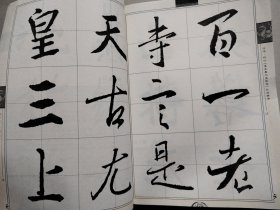 百一老
寺言是
天古尤
皇三上